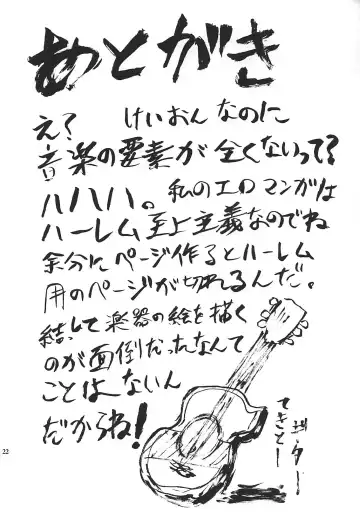 あとがき
え? けいおんなのに
音楽の要素が全くないって?
ハハハ。私のエロマンガは
ハーレム至上主義なのでね
余分にページ作るとハーレム
用のページが切れるんだ。
結して楽器の絵を描く
のが面倒だったなんて
ことはないん
だからね!
ギター
てきとー
22